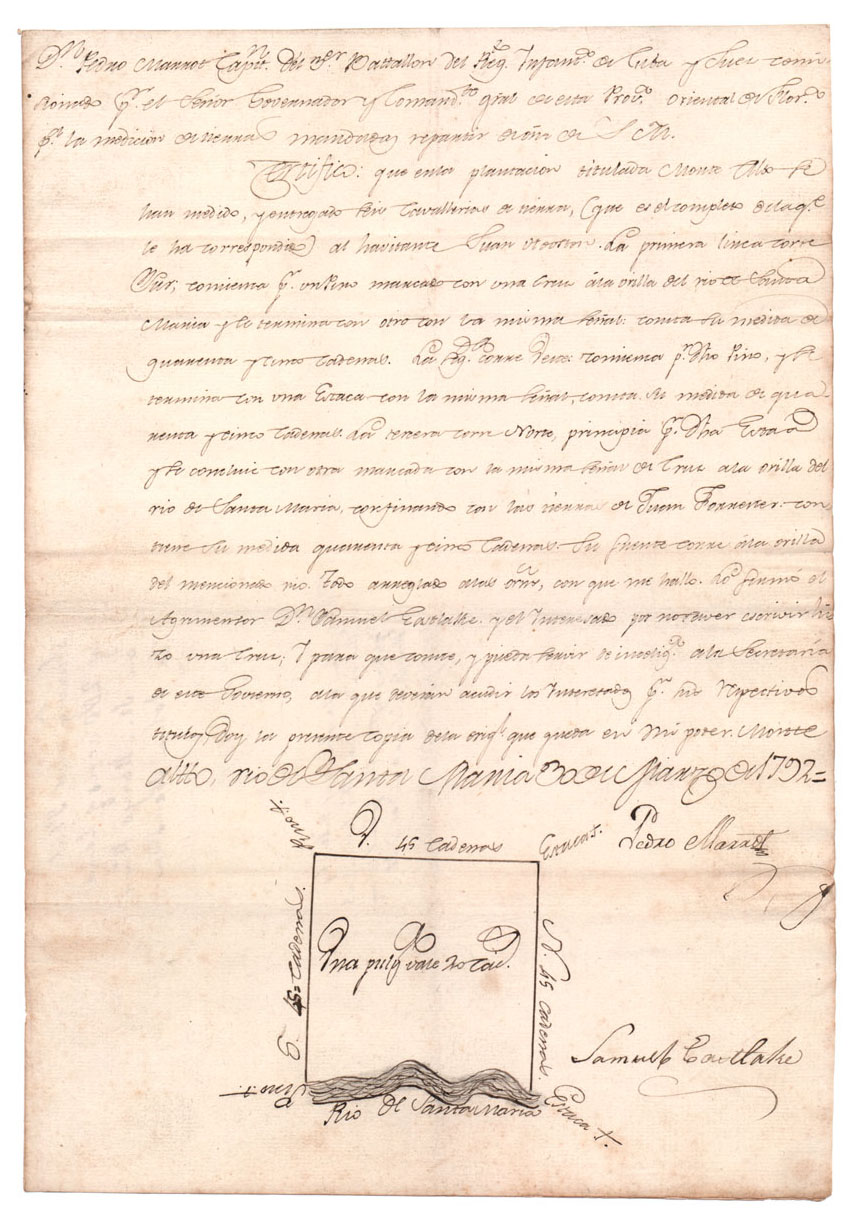 Dn. Pedro Marrot Capitn. del 3er. Battallon del Reg. Infanto. de Cuba y Juez comi-
cionado pr. el Señor Governador y Comandte. gral de esta Prova. Oriental de Flora.
pa. la medicion de tierras mandadas repartir de orn. de S. M.
Certifico: que enla plantacion titulada Monte Alto se
han medido, y entregado seis Cavallerias de tierra, (que es el completo de la qe.
le ha correspondido) al havitante Juan. La primera linea corre
Sur, comienza pr. un Pino marcado con una Cruz ála orilla del rio de Santa
Maria y se termina con otro con la misma señal: consta su medida de
quarenta y cinco Cadenas. La sega. corre Oeste: comienza pr. dho Pino, y se
termina con una Estaca con la misma señal, consta su medida de qua-
renta y cinco Cadenas. La tercera corre Norte, principia pr. dha Estaca
y se concluie con otra marcada con la misma señal de Cruz ala orilla del
rio de Santa Maria, confinando con las tierras de Juan Forrester: con-
tiene su medida quarenta y cinco Cadenas. Su frente corre ála orilla
del mencionado rio. Todo arreglado alas ornes, con que me hallo. Lo firmó el
Agrimensor Dn. Samuel Eastlake. y el Interesado por no saver escrivir hi-
zo una Cruz; I para que conste, y pueda servir de inteliga. ala Secretaría
de este Govierno, ala que deverán acudir los Interesados pr. sus respectivos
titulos, Doy la presente copia dela origl. que queda en mi poder. Monte
alto, rio de Santa Maria 30 de Marzo de 1792=
Pino +.
O. 45 Cadenas
Estaca +.
Pedro Marrot
S. 45= Cadenas.
Una pulgª vale 20 Cad.
N. 45 Cadenas.
Samuel Eastlake
Pino +
Rio De Santa Maria
Estaca +.